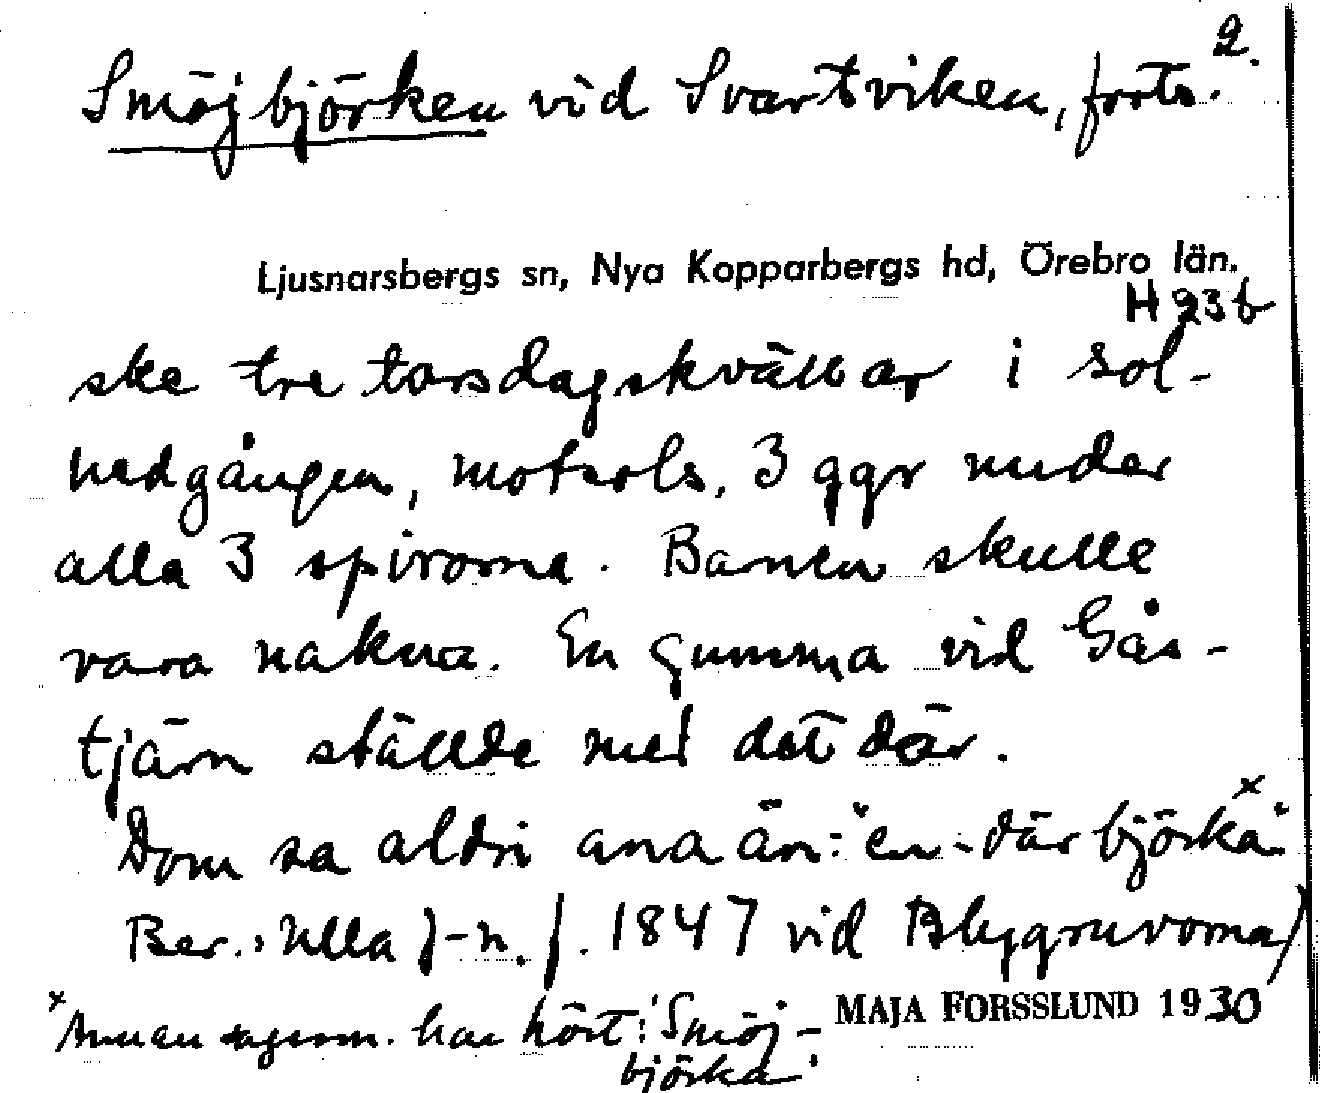 2.
Smöjbjörken vid Svartviken, forts.
Ljusnarsbergs sn, Nya Kopparbergs hd, Örebro län.
H 23 b
ske tre torsdagskvällar i sol-
nedgången, motsols, 3 ggr under
alla 3 spirorna. Barnen skulle
vara nakna. En gumma vid Gås-
tjärn ställde med det där.
Dom sa aldri ana än: "en-där björka"x
Ber.: Ulla J-n. f. 1847 vid Blygruvorna)
x Annan sagesm. har hört: 'Smöj-
björka'
MAJA FORSSLUND 1930